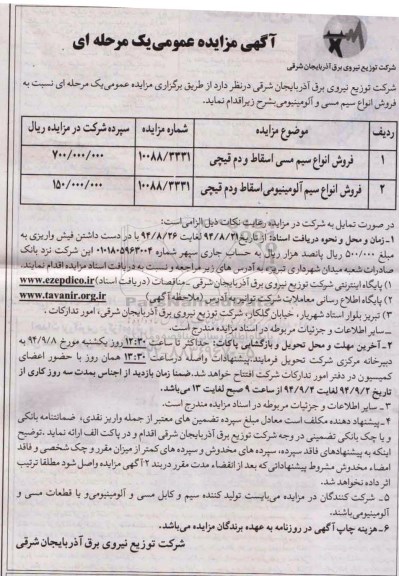 آگهی مزایده عمومی یک مرحله ای
شرکت توزیع نیروی برق آذربایجان شرقی
شرکت توزیع نیروی برق آذربایجان شرقی درنظر دارد از طریق برگزاری مزایده عمومی یک مرحله ای نسبت به
فروش انواع سیم مسی و آلومینیومی بشرح زیر اقدام نماید.
ردیف موضوع مزایده شماره مزایده سپرده شرکت در مزایده ریال
۱ فروش انواع سیم مسی اسقاط و دم قیچی ۱۰۰۸۸/۳۳۳۱ ۷۰۰/۰۰۰/۰۰۰
۲ فروش انواع سیم آلومینیومی اسقاط ودم قیچی ۱۰۰۸۸/۳۳۳۱ ۱۵۰/۰۰۰/۰۰۰
در صورت تمایل به شرکت در مزایده رعایت نکات ذیل الزامی است:
۱- زمان و محل و نحوه دریافت اسناد: از تاریخ ۹۴/۸/۲۱ لغایت ۹۴/۸/۲۶ با در دست داشتن فیش واریزی به
مبلغ ۵۰۰/۰۰۰ ریال پانصد هزار ریال به حساب جاری سپهر شماره ۰۱۰۱۸۰۵۹۶۳۰۰۴ این شرکت نزد بانک
صادرات شعبه میدان شهرداری تبریز، به آدرس های زیر مراجعه و نسبت به دریافت اسناد مزایده اقدام نمایند.
۱) پایگاه اینترنتی شرکت توزیع نیروی برق آذربایجان شرقی -مناقصات (دریافت اسناد) www.ezepdico.ir
۲) پایگاه اطلاع رسانی معاملات شرکت توانیر به آدرس (ملاحظه آگهی) www.tavanir.org.ir
۳) تبریز بلوار استاد شهریار، خیابان گلکار، شرکت توزیع نیروی برق آذربایجان شرقی، امور تدارکات .
_ سایر اطلاعات و جزئیات مربوطه در اسناد مزایده مندرج است.
۲- آخرین مهلت و محل تحویل و بازگشایی پاکات: حداکثر تا ساعت ۱۲:۳۰ روز یکشنبه مورخ ۹۴/۹/۸ به
دبیرخانه مرکزی شرکت تحویل فرمایند. پیشنهادات واصله درساعت ۱۳:۳۰ همان روز با حضور اعضای
کمیسیون در دفتر امور تدارکات شرکت افتتاح خواهد شد. ضمنا زمان بازدید از اجناس بمدت سه روز کاری از
تاریخ ۹۴/۹/۲ لغایت ۹۴/۹/۴ از ساعت ۹ صبح لغایت ۱۳ می‌باشد.
۳- سایر اطلاعات و جزئیات مربوطه در اسناد مزایده مندرج است.
۴- پیشنهاد دهنده مکلف است معادل مبلغ سپرده تضمین های معتبر از جمله واریز نقدی، ضمانتنامه بانکی
و یا چک بانکی تضمینی در وجه شرکت توزیع برق آذربایجان شرقی اقدام و در پاکت الف ارائه نماید .توضیح
اینکه به پیشنهادهای فاقد سپرده، سپرده های مخدوش و سپرده های کمتر از میزان مقرر و چک شخصی و فاقد
امضاء مخدوش مشروط پیشنهاداتی که بعد از انقضاء مدت مقرر دربند ۲ آگهی مزایده واصل شود مطلقا ترتیب
اثر داده نخواهد شد.
۵- شرکت کنندگان در مزایده می‌بایست تولید کننده سیم و کابل مسی و آلومینیومی و یا قطعات مسی و
آلومینیومی‌باشند.
۶- هزینه چاپ آگهی در روزنامه به عهده برندگان مزایده می‌باشد.
شرکت توزیع نیروی برق آذربایجان شرقی